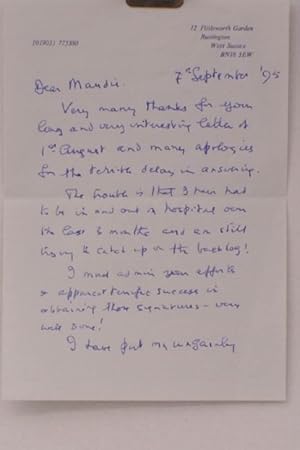 12 Pilldsworth Garden
Rustington
West Sussex
BN16
(01903) 775380
7th September '95
Dear Maudie.
Very many thanks for your
long and very interesting letter of
1st August and many apologies
for the terrible delay in answering.
The trouble is that I have had
to be in and out of hospital over
the last 3 months and am still
trying to catch up on the backlog!
I must admire your efforts
& apparent terrific success in
obtaining those signatures - very
well done!
I have put my ungainly